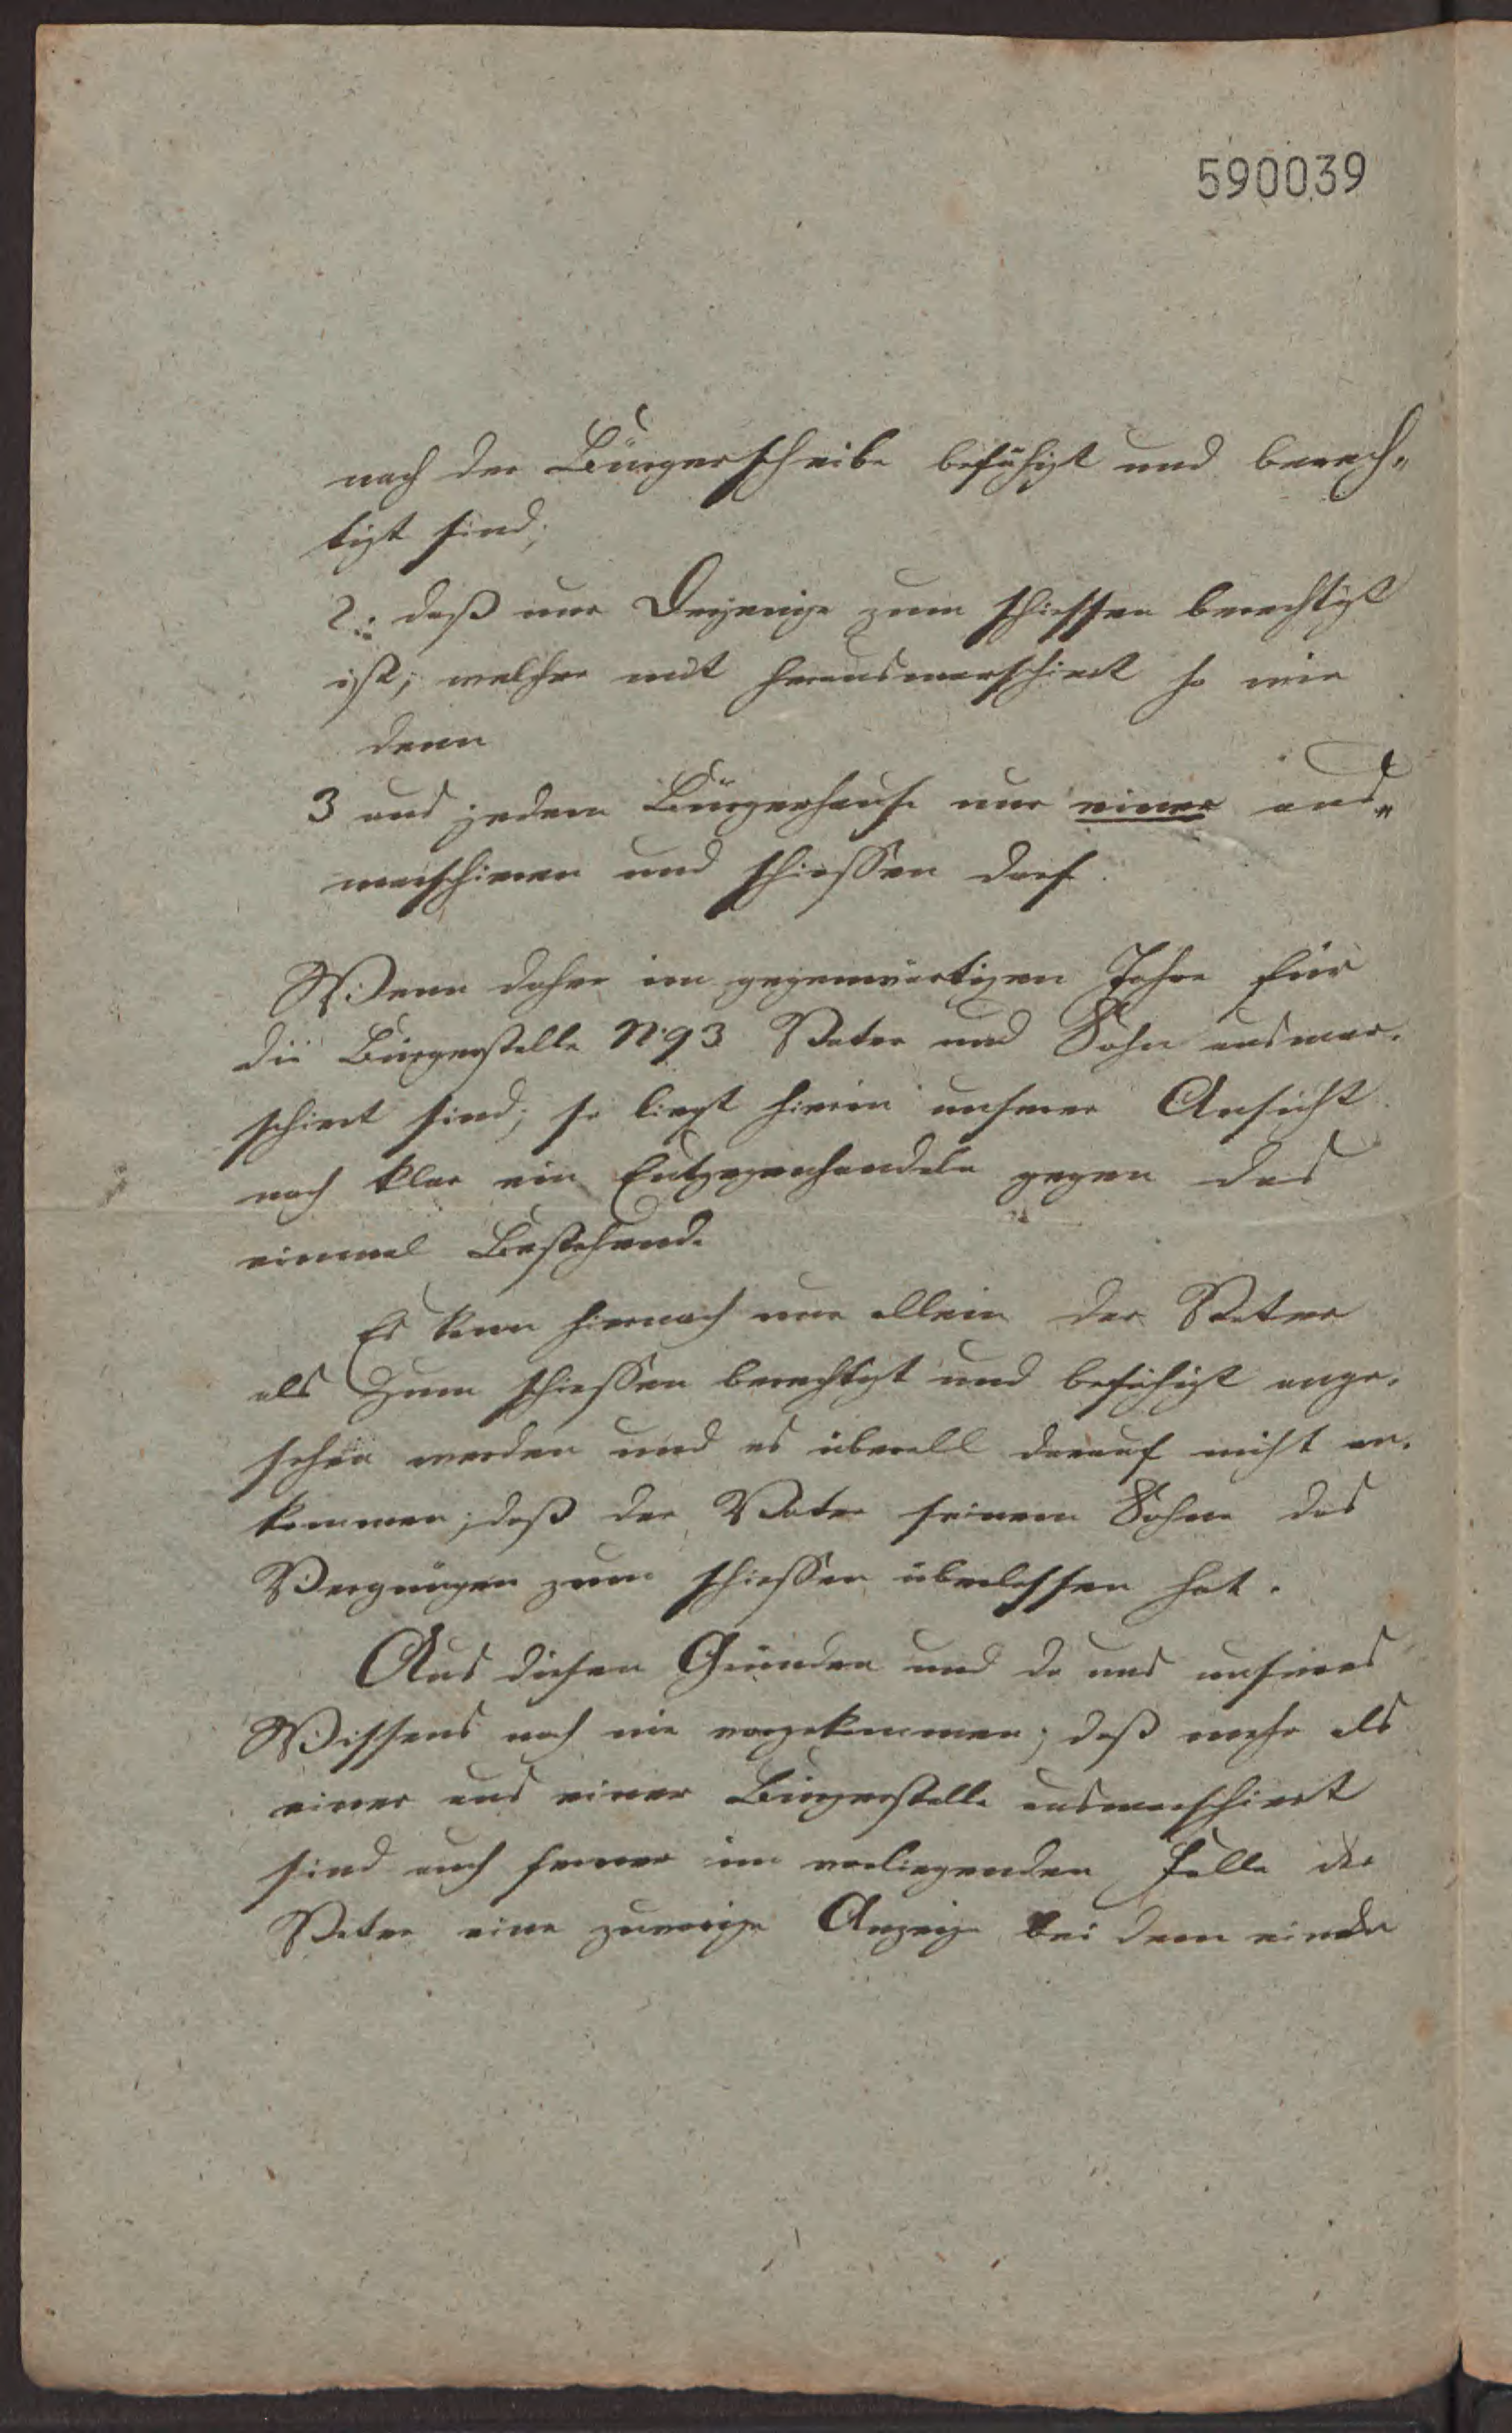 590039
nach der Bürgerscheibe befähigt und berech„
tigt sind;
2. daß nur Derjenige zum schiessen berechtigt
ist, welcher mit herausmarschiert so wie
denn
3 aus jedem Bürgerhause nur einer aus„
marschieren und schiessen darf.
Wenn daher im gegenwärtigen Jahre für
die Bürgerstelle No 93 Vater und Sohn ausmar-
schiert sind; so liegt hierin unserer Ansicht
nach klar ein Entgegenhandeln gegen das
einmal Bestehende
Es kann hiernach nur allein der Vater
als zum schiessen berechtigt und befähigt ange-
sehen werden und es überall darauf nicht an-
kommen; daß der Vater seinem Sohne das
Vergnügen zum schiessen überlassen hat.
Aus diesen Gründen und da uns unseres
Wissens noch nie vorgekommen; daß mehr als
einer aus einer Bürgerstelle ausmarschiert
sind auch ferner im vorliegenden Falle der
Vater eine Anzeige bei dem